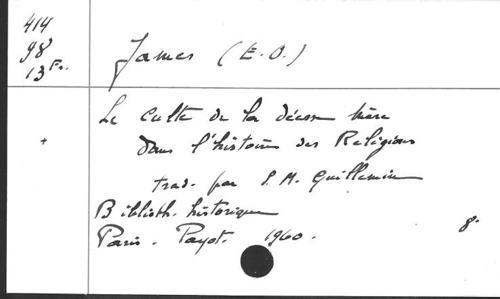 414
98
13 Fr.
James (E.O.)
Le culte de la déesse mère
+ dans l'histoire des Religions
trad. par S. M. Guillemin
Biblioth. historique
Paris. Payot. 1960. 8°